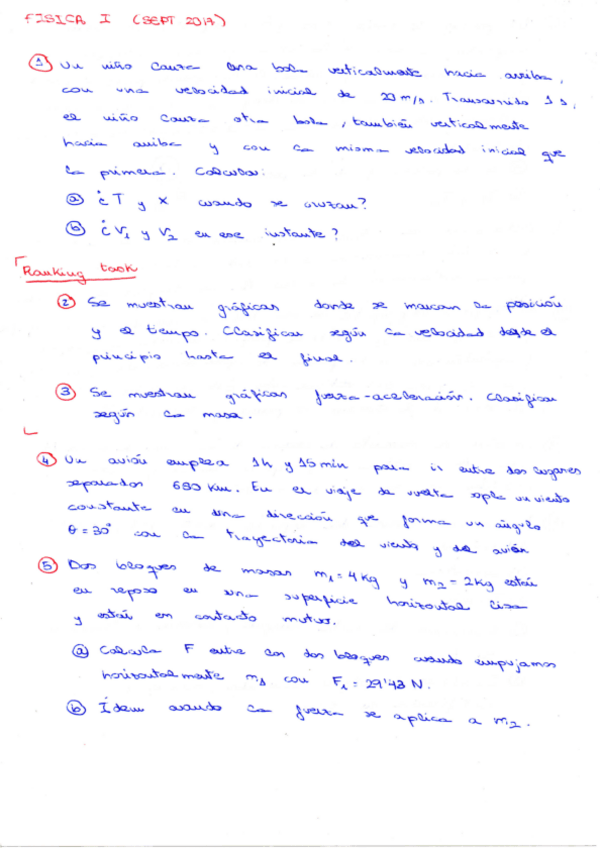 FISICA I (SEPT 2017)
1 Un niño lanza una bola verticalmente hacia arriba,
con una velocidad inicial de 20 m/s. Transcurrido 1 s,
el niño lanza otra bola, también verticalmente
hacia arriba y con la misma velocidad inicial que
la primera. Calcular:
a ¿T y x cuando se cruzan?
b ¿V1 y V2 en ese instante?
Ranking task
2 Se muestran gráficas donde se marcan la posición
y el tiempo. Clasificar según la velocidad desde el
principio hasta el final.
3 Se muestran gráficas fuerza-aceleración. Clasificar
según la masa.
4 Un avión emplea 1h y 15min para ir entre dos lugares
separados 680 km. En el viaje de vuelta sopla un viento
constante en una dirección que forma un ángulo
θ = 30° con la trayectoria del viento y del avión
5 Dos bloques de masas m1 = 4kg y m2 = 2kg están
en reposo en una superficie horizontal lisa
y están en contacto mutuo.
a Calcula F entre los dos bloques cuando empujamos
horizontalmente m1 con F1 = 29'43 N.
b Ídem cuando la fuerza se aplica a m2.